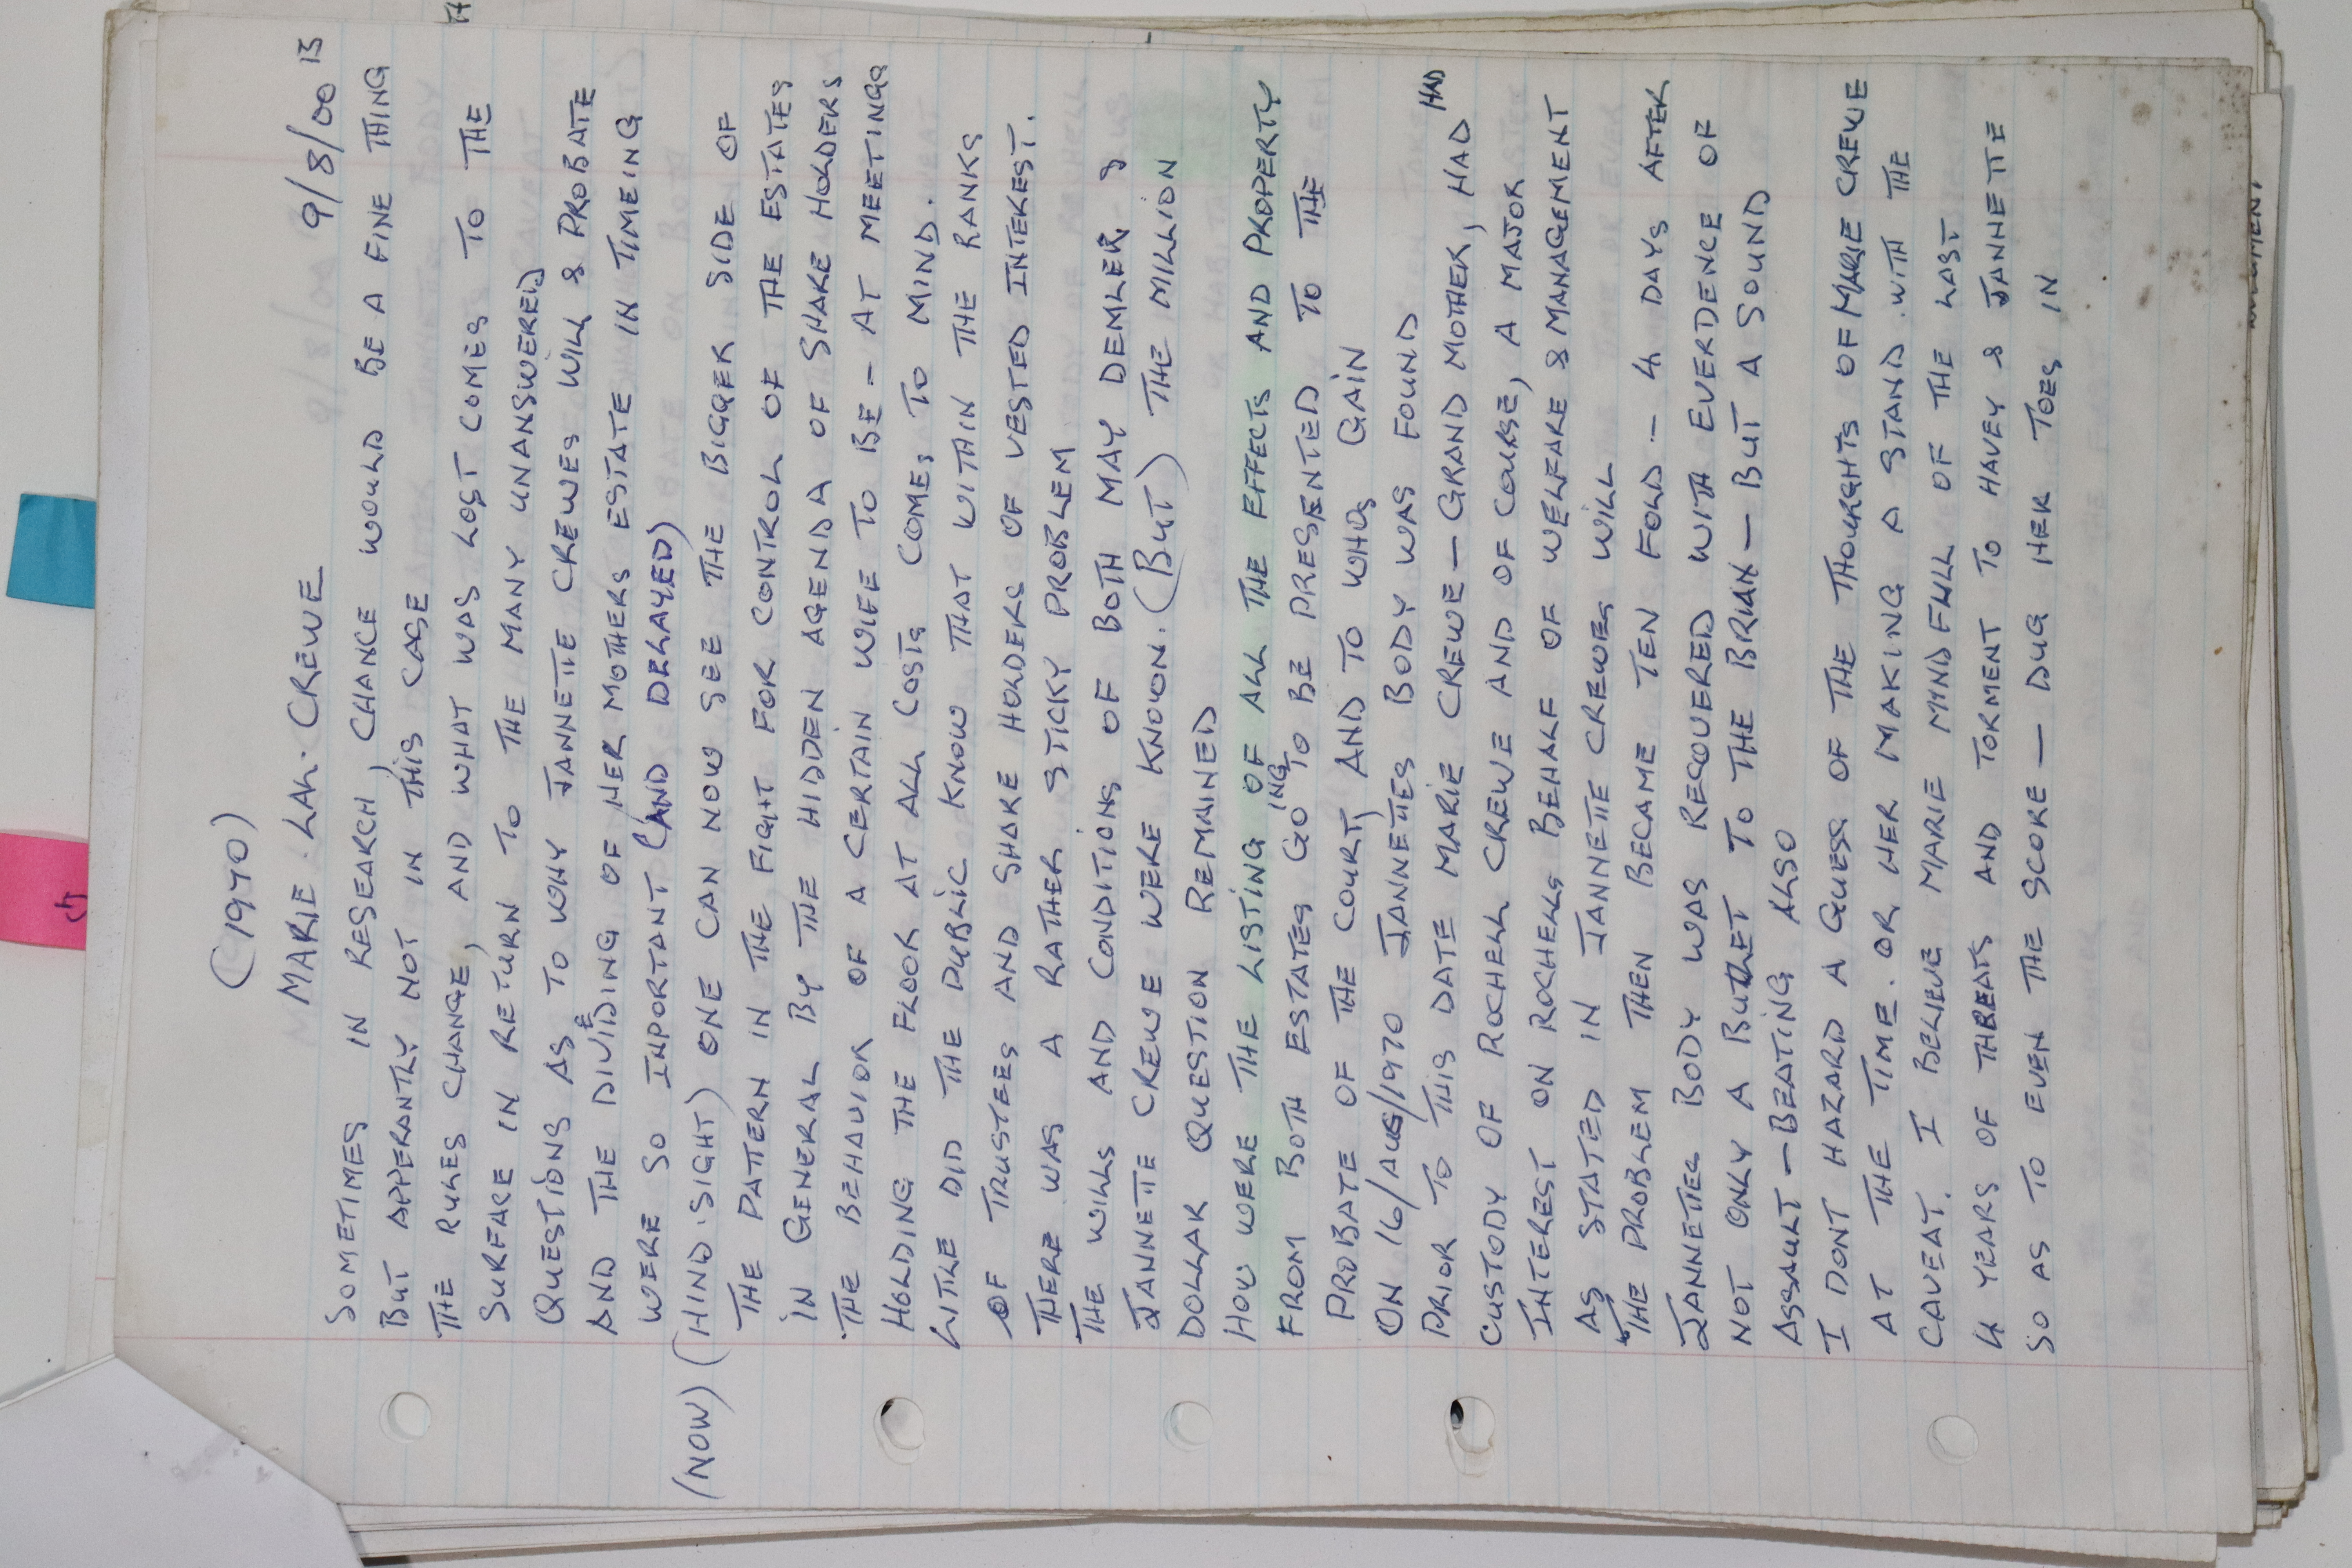 (1970)
MARIE. LAL. CREWE 9/8/00 15
SOMETIMES IN RESEARCH, CHANCE WOULD BE A FINE THING
BUT APPERANTLY NOT IN THIS CASE
THE RULES CHANGE, AND WHAT WAS LOST COMES TO THE
SURFARE IN RETURN TO THE MANY UNANSWERED
QUESTIONS AS TO WHY JANNETTE CREWES WILL & PROBATE
AND THE DIVIDEING OF HER MOTHERS ESTATE IN TIMEING
WERE SO INPORTANT (AND DELAYED)
(NOW) (HIND.SIGHT) ONE CAN NOW SEE THE BIGGER SIDE OF
THE PATTERN IN THE FIGHT FOR CONTROL OF THE ESTATES
IN GENERAL BY THE HIDDEN AGENDA OF SHARE HOLDERS
THE BEHAVIOR OF A CERTAIN WIFE TO BE - AT MEETINGS
HOLDING THE FLOOR AT ALL COSTS COMES TO MIND.
LITTLE DID THE PUBLIC KNOW THAT WITHIN THE RANKS
OF TRUSTEES AND SHARE HOLDERS OF VESTED INTEREST.
THERE WAS A RATHER STICKY PROBLEM
THE WILLS AND CONDITIONS OF BOTH MAY DEMLER &
JANNETTE CREWE WERE KNOWN. (BUT) THE MILLION
DOLLAR QUESTION REMAINED
HOW WERE THE LISTING OF ALL THE EFFECTS AND PROPERTY
FROM BOTH ESTATES GOING TO BE PRESENTED TO THE
PROBATE OF THE COURT, AND TO WHOS GAIN
ON 16/AUG/1970 JANNETTES BODY WAS FOUND
PRIOR TO THIS DATE MARIE CREWE - GRAND MOTHER, HAD HAD
CUSTODY OF ROCHELL CREWE AND OF COURSE, A MAJOR
INTEREST ON ROCHELLS BEHALF OF WELFARE & MANAGEMENT
AS STATED IN JANNETTE CREWES WILL
THE PROBLEM THEN BECAME TEN FOLD - 4 DAYS AFTER
JANNETTES BODY WAS RECOVERED WITH EVERDENCE OF
NOT ONLY A BUTHET TO THE BRIAN - BUT A SOUND
ASSAULT - BEATING ALSO
I DONT HAZARD A GUESS OF THE THOURGHTS OF MARIE CREWE
AT THE TIME. OR HER MAKING A STAND WITH THE
CAVEAT. I BELIEVE MARIE MINDFULL OF THE LAST
4 YEARS OF THREATS AND TORMENT TO HAVEY & JANNETTE
SO AS TO EVEN THE SCORE - DUG HER TOES IN